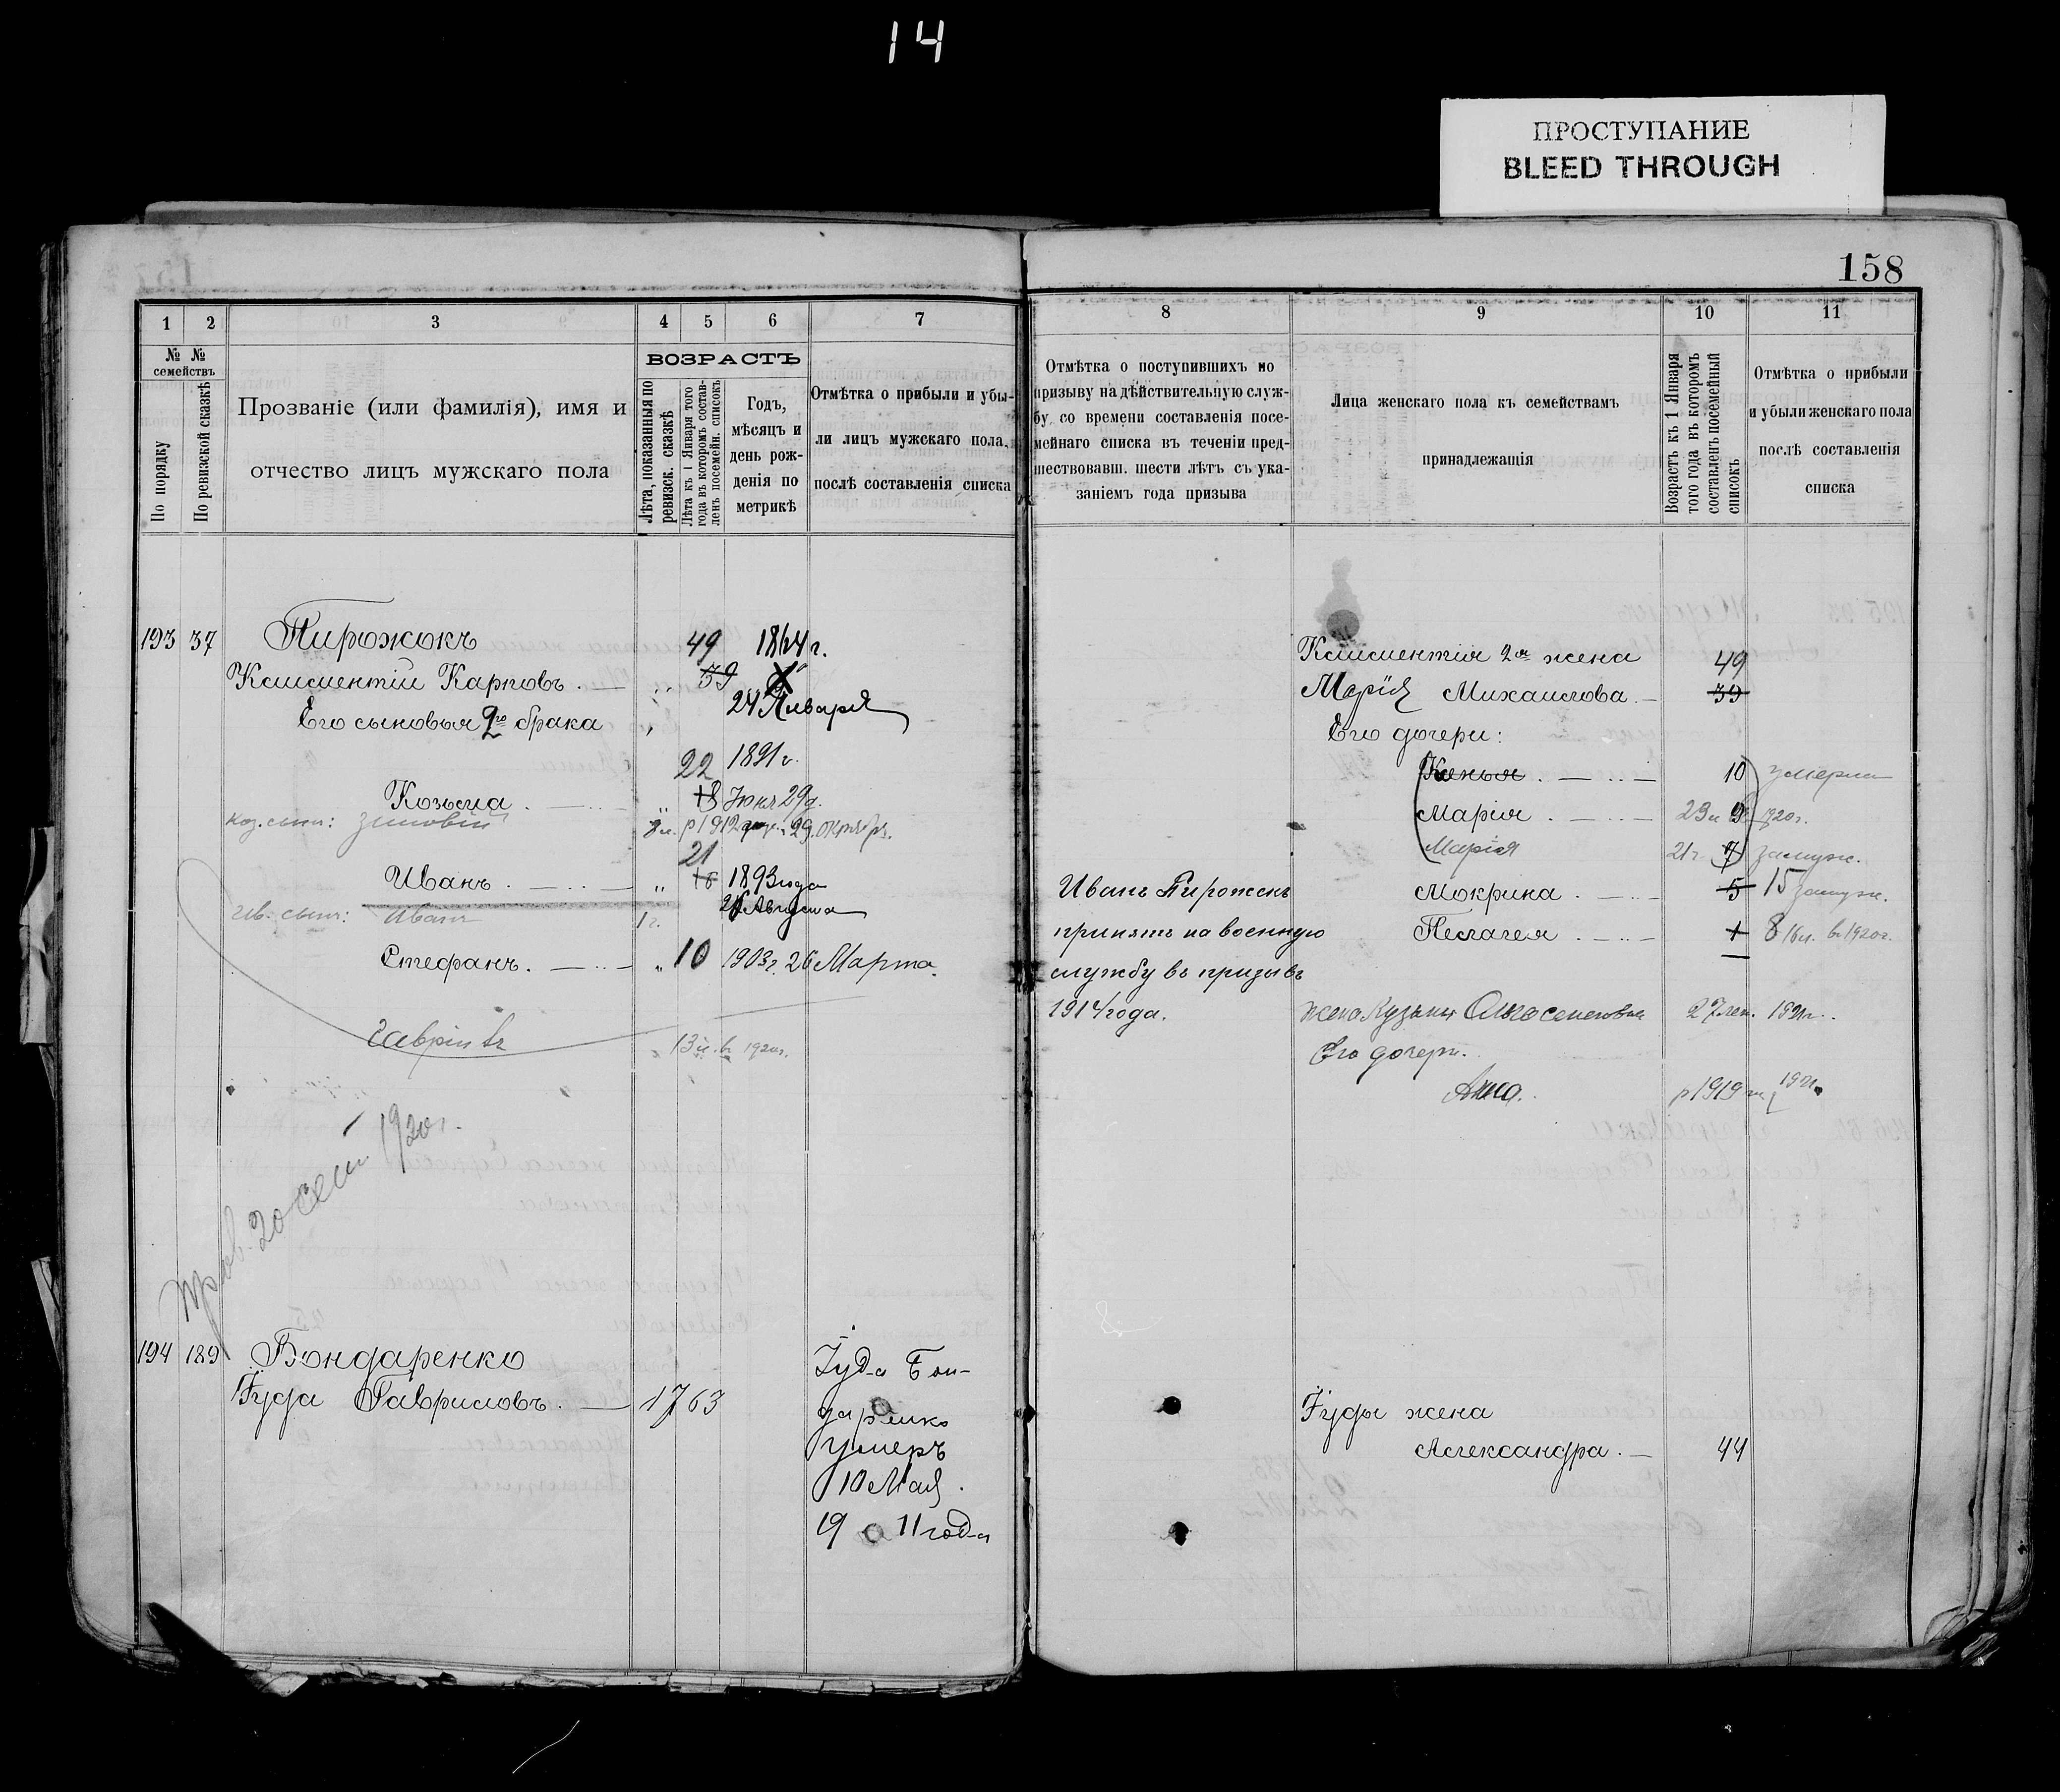 14
ПРОСТУПАНИЕ
BLEED THROUGH
158
1 2 3 4 5 6 7
№ № семействъ
По порядку
По ревизской сказкѣ
Прозваніе (или фамилія), имя и
отчество лицъ мужскаго пола
ВОЗРАСТЪ
Лѣта, показанныя по
ревизск. сказкѣ
Лѣта къ 1 Января того
года въ которомъ состав-
ленъ посемейн. списокъ
Годъ,
мѣсяцъ и
день рож-
денія по
метрикѣ
Отмѣтка о прибыли и убы-
ли лицъ мужскаго пола,
послѣ составленія списка
193 37 Пирожокъ 49 1864 г.
Климентій Карповъ. „ 39
24 Января
Его сыновья 2го брака
22 1891 г.
Козьма. „ 18 Іюня 29 д.
Коз. сынъ: Зиновій 8 л. р 1912 29 октября.
21
Иванъ. „ 16 1893 года
Августа
Ив. сынъ: Иванъ 1 г.
Стефанъ. „ 10 1903 г. 26 Марта.
Гавріилъ 13 л. в 1920 г.
1920 г.
194 189 Бондаренко
Іуда Гавриловъ. 17 63
Іуда Бон-
даренко
умеръ
10 Мая.
1911 года
8 9 10 11
Отмѣтка о поступившихъ по
призыву на дѣйствительную служ-
бу, со времени составленія посе-
мейнаго списка въ теченіи пред-
шествовавш. шести лѣтъ съ ука-
заніемъ года призыва
Лица женскаго пола къ семействамъ
принадлежащія
Возрастъ къ 1 Января
того года въ которомъ
составленъ посемейный
списокъ
Отмѣтка о прибыли
и убыли женскаго пола
послѣ составленія
списка
Климентія 2я жена 49
Марія Михаилова. 39
Его дочери:
Ксенья. 10 умерла
Марія. 23 л 9 1920 г.
Марія 21 г. 7 замуж.
Мокрина. 5 15 замуж.
Пелагея. 1 8 16 л. в 1920 г.
Иванъ Пирожокъ
принятъ на военную
службу въ призывъ
1914 года.
жена Кузьмы Ольга Семеновна 27 лет. 1921 г.
Его дочери.
Анна. р 1919 1921
Іуды жена
Александра. 44